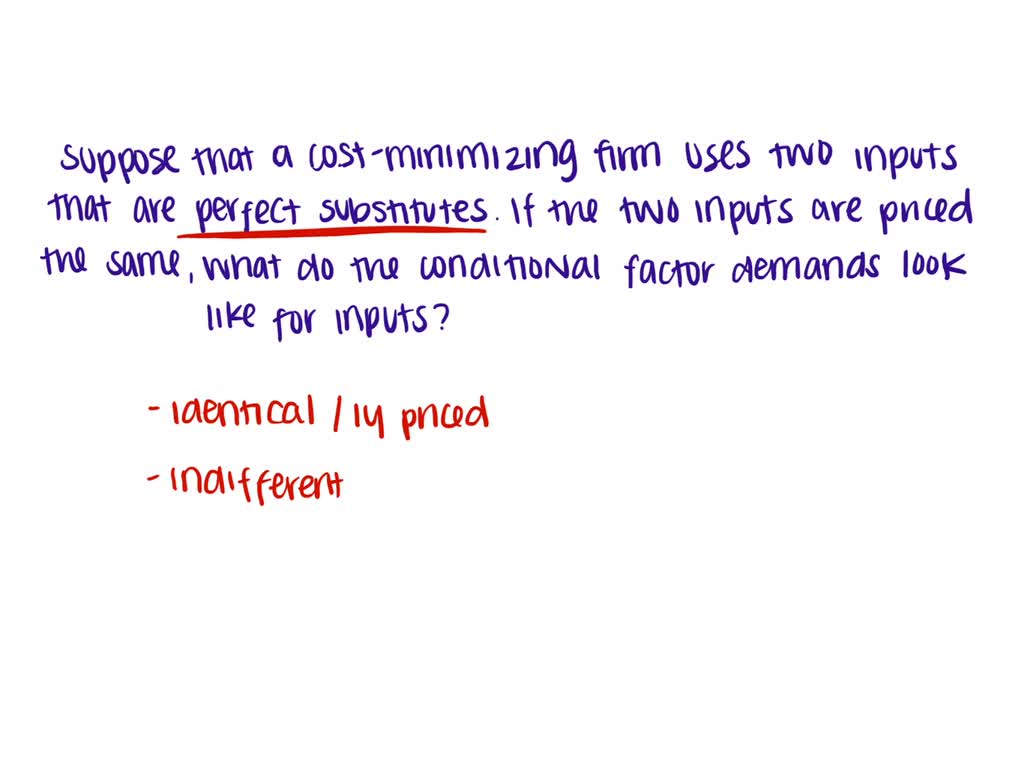 suppose that a cost-minimizing firm uses two inputs
that are perfect substitutes. If the two inputs are priced
the same, what do the conditional factor demands look
like for inputs?
- identical / ly priced
- indifferent